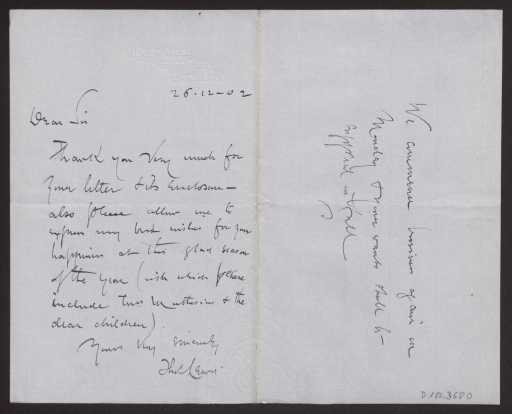 26.12.02
Dear Sir
Thank you very much for
your letter & its enclosure –
also please allow me to
express my best wishes for your
happiness at this glad season
of the year (wish which please
include Mrs & the
dear children)
Yours very sincerely
Thos Lewis
We commence business again on
Monday & your wants shall be
supplied as
D/DX.36